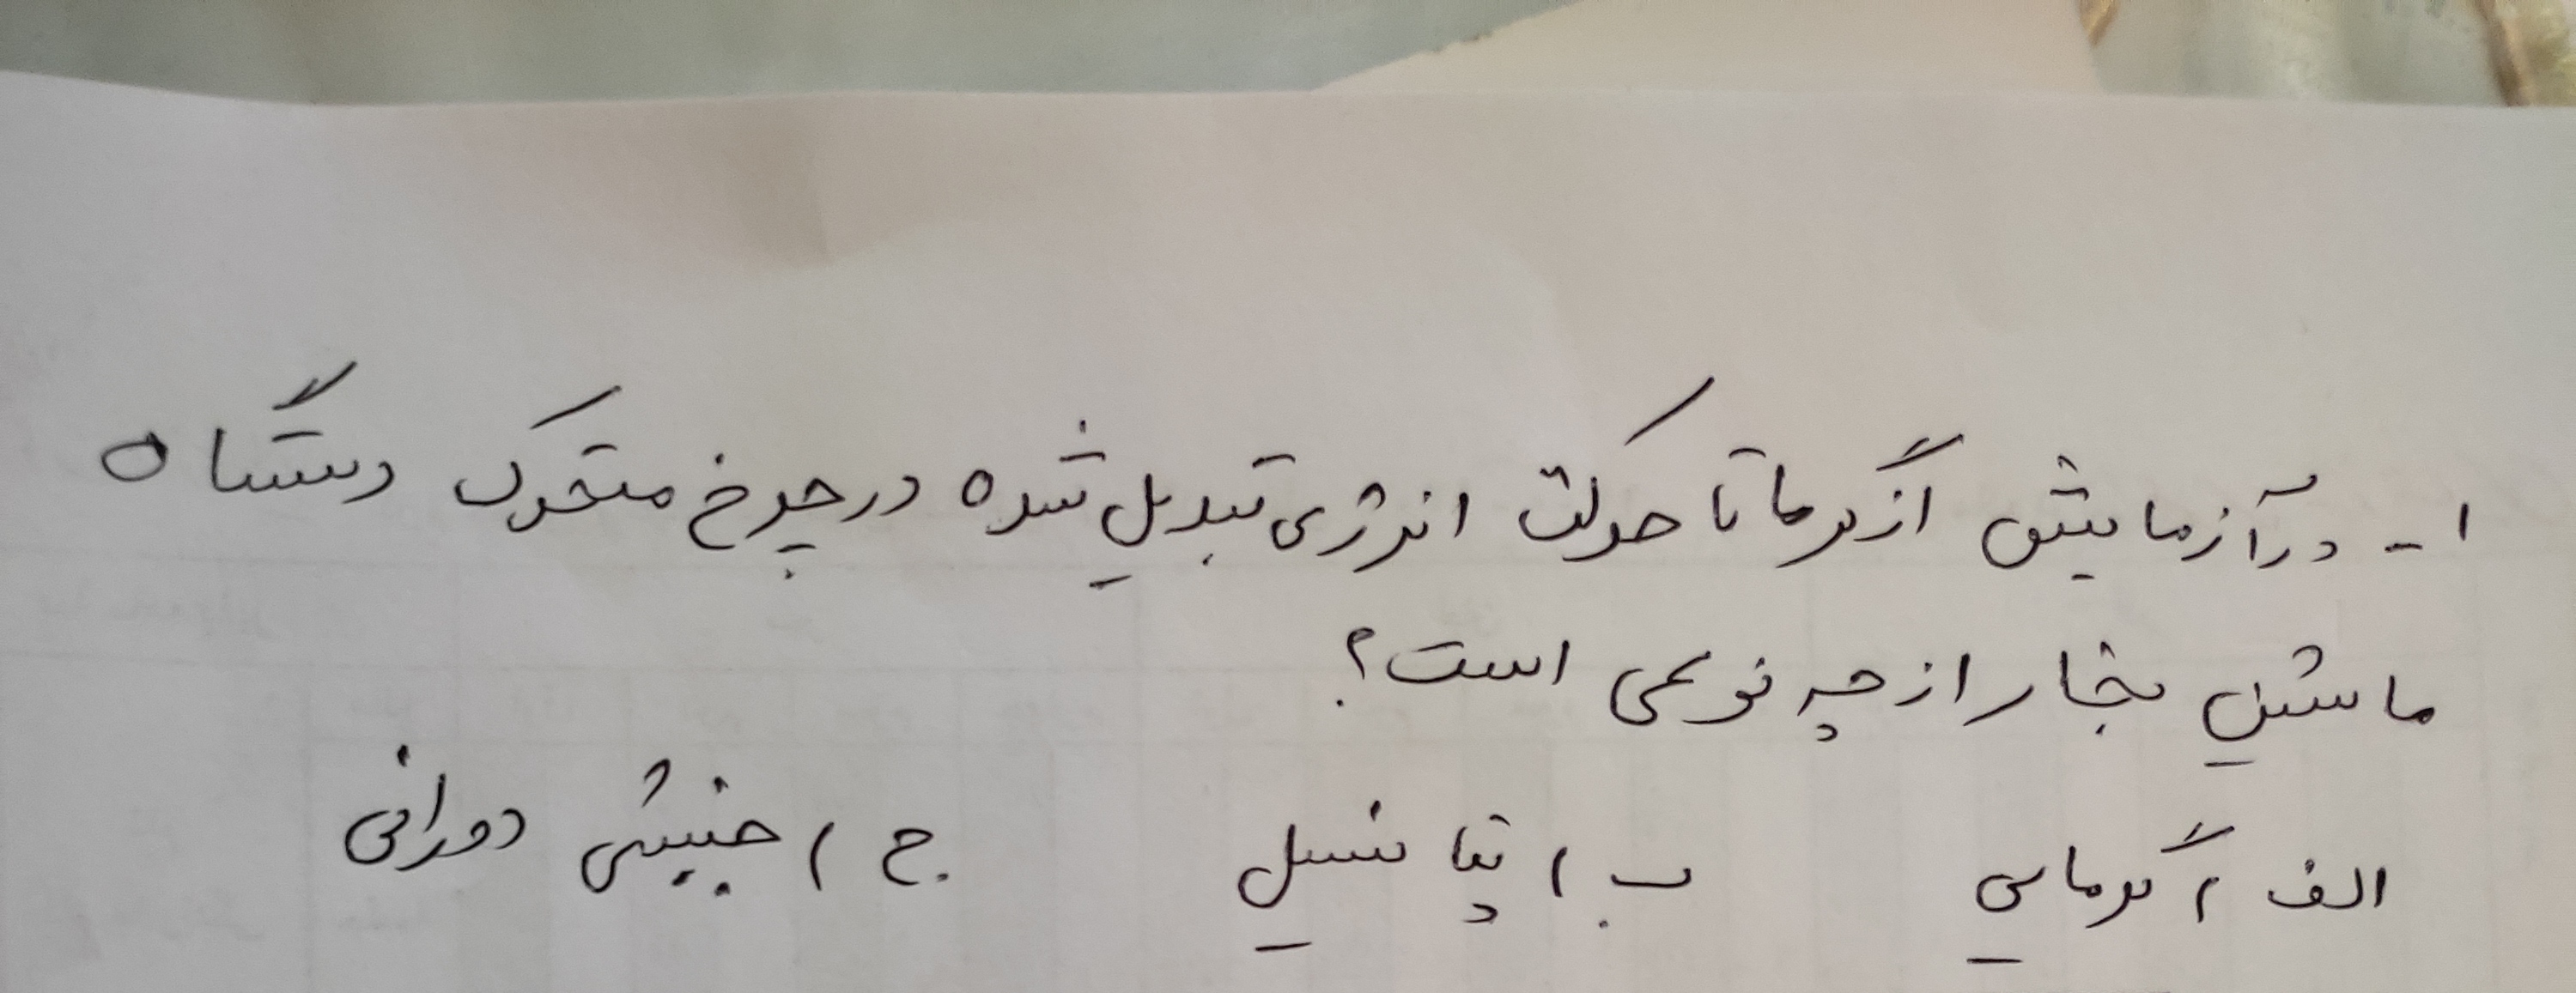 ۱- در آزمایش از گرما تا حرکت انرژی تبدیل شده در چرخ متحرک دستگاه
ماشین بخار از چه نوعی است؟
الف) گرمایی ب) پتانسیل ج) جنبشی دورانی